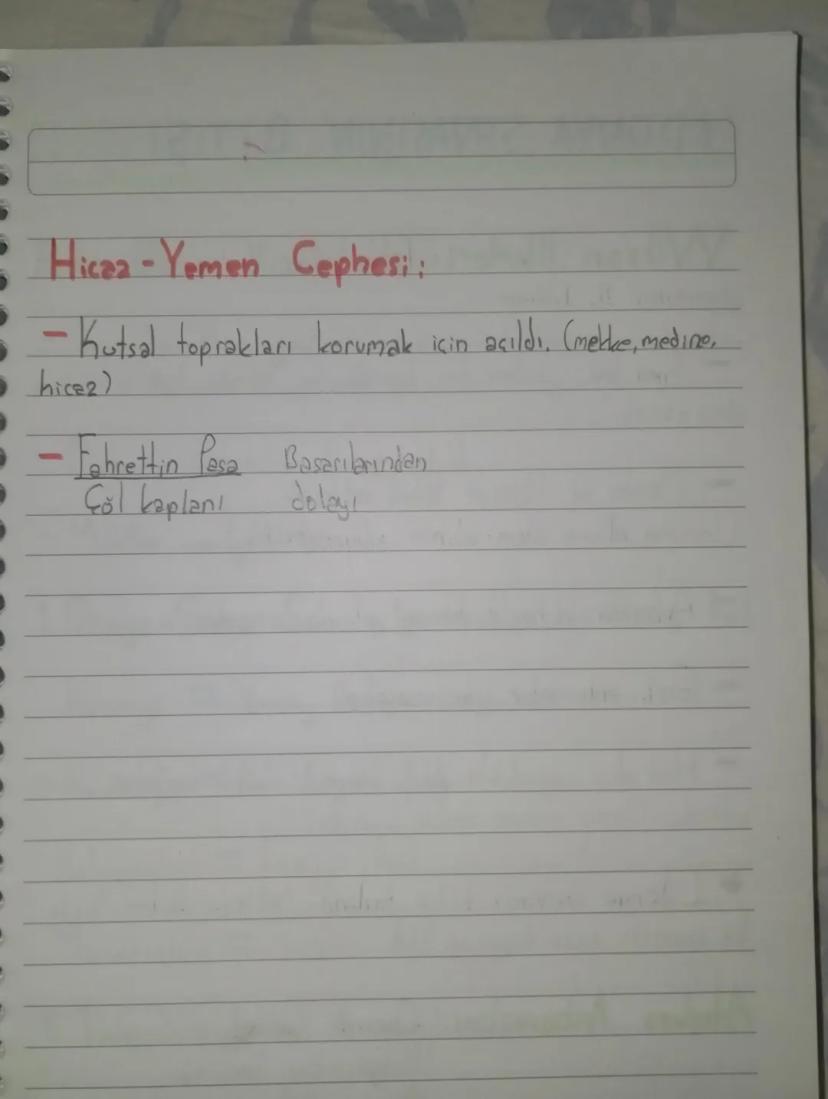 Hicaz-Yemen Cephesi:
- Kutsal toprakları korumak için açıldı. (mekke, medine,
hicaz)
- Fahrettin Paşa Başarılarından
Çöl kaplanı dolayı